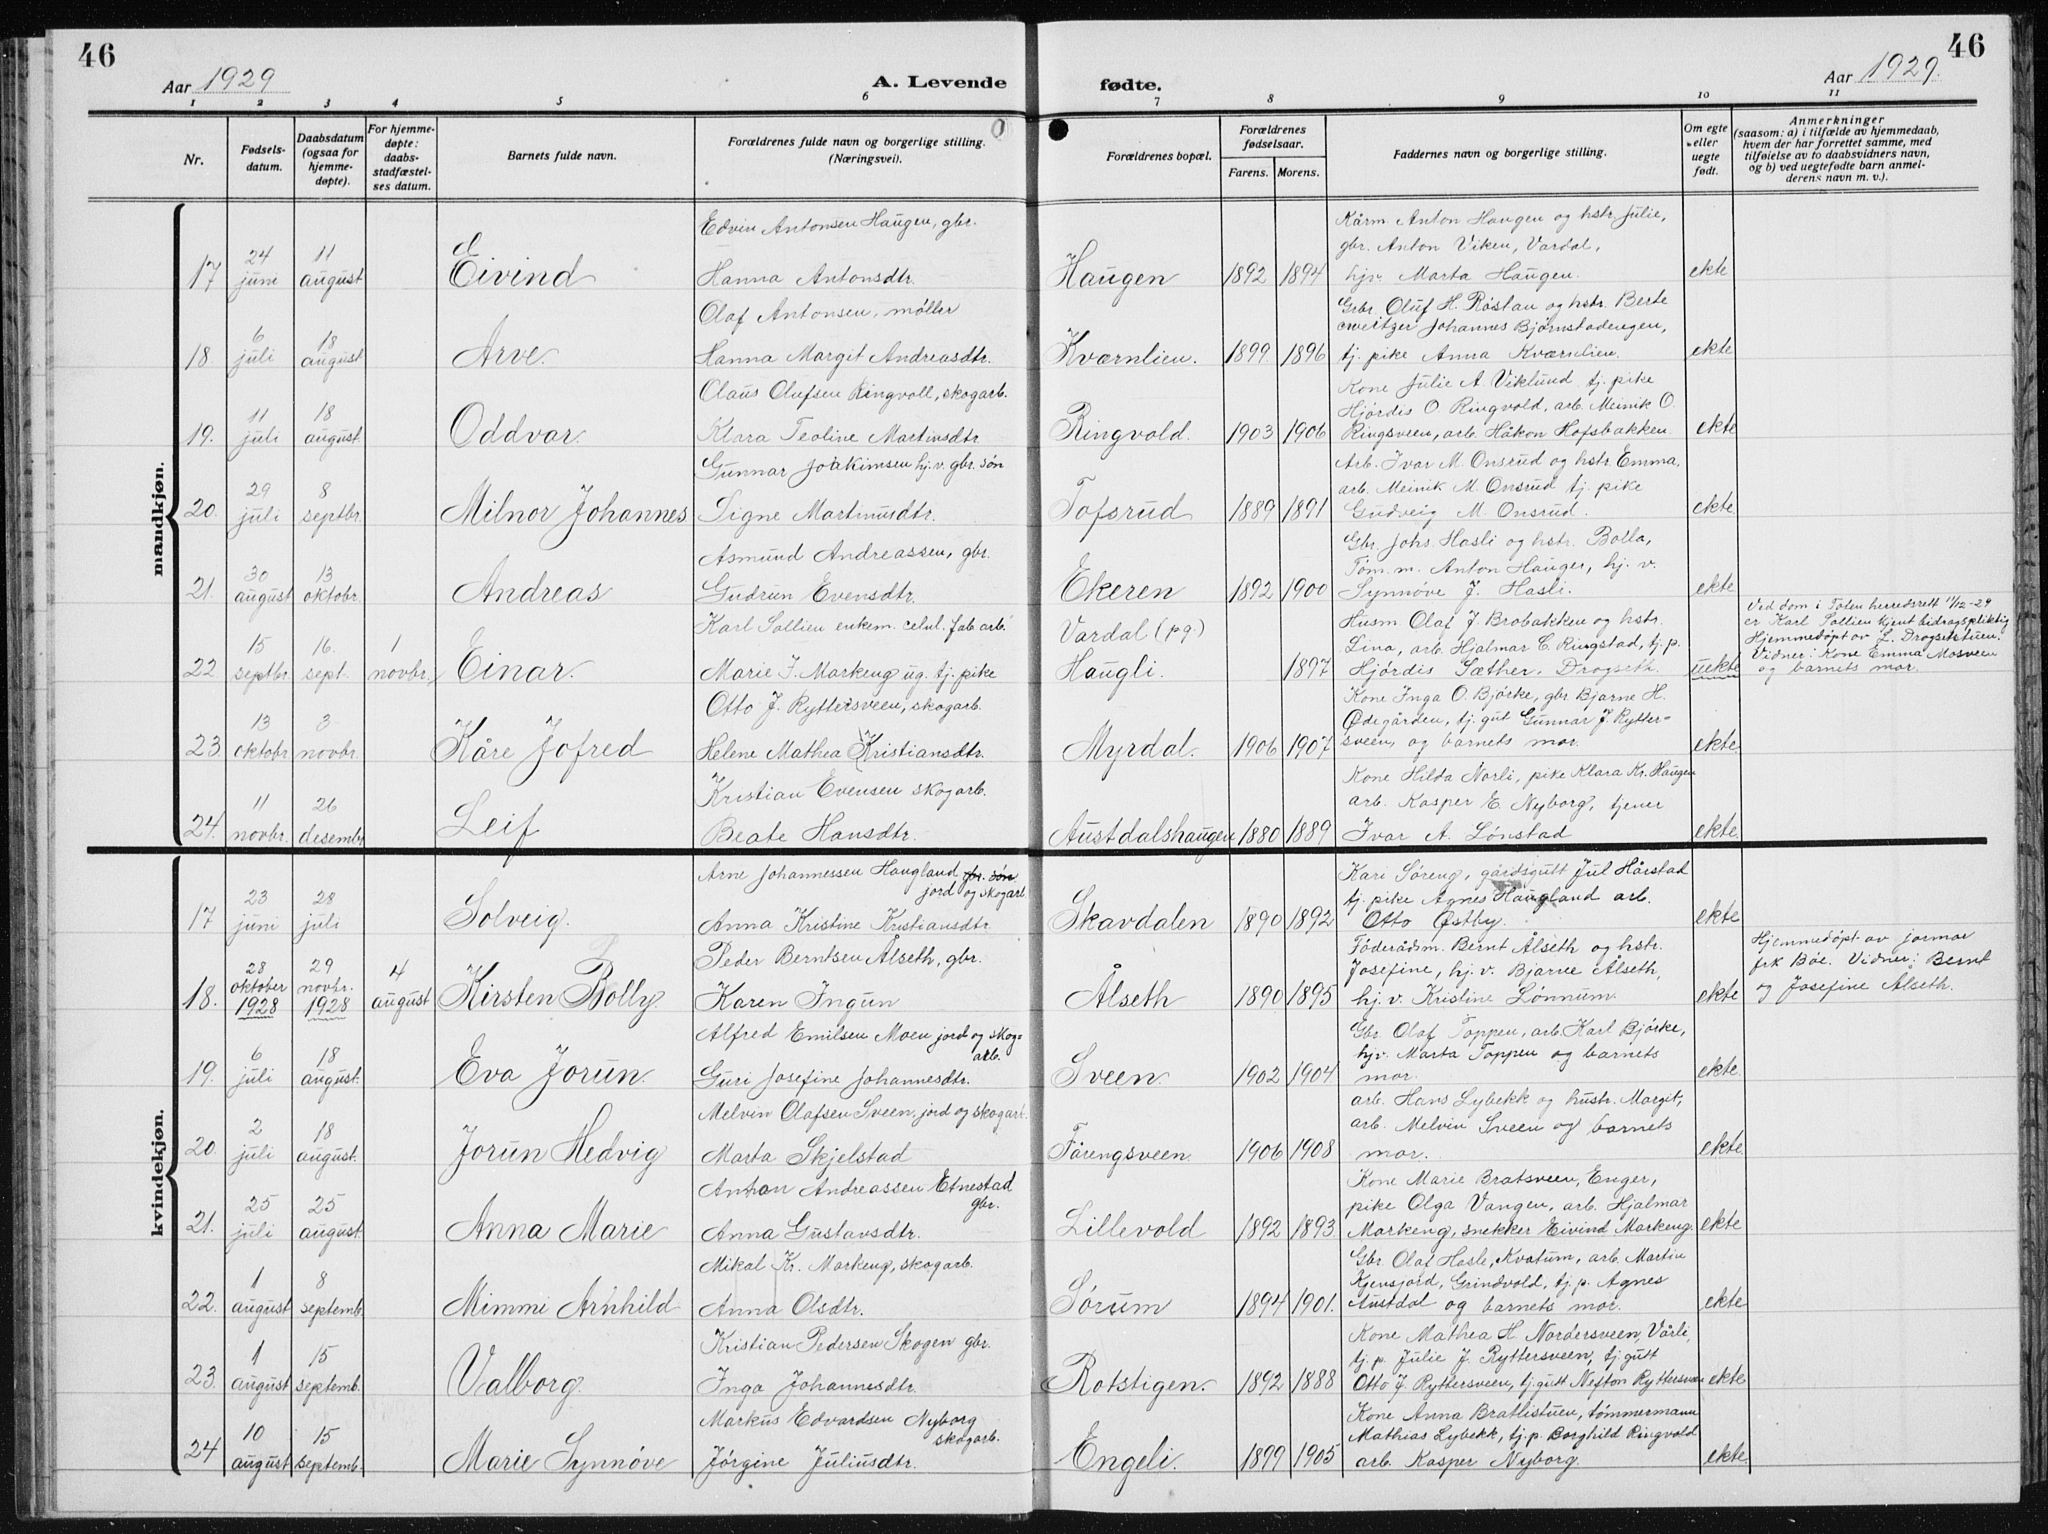 46
Aar 1929
A. Levende
fødte.
Aar 1929.
46
1 2 3 4 5 6 7 8 9 10 11
Nr.
Fødsels-
datum.
Daabsdatum
(ogsaa for
hjemme-
døpte).
For hjemme-
døpte:
daabs-
stadfæstel-
ses datum.
Barnets fulde navn.
Forældrenes fulde navn og borgerlige stilling.
(Næringsvei).
Forældrenes bopæl.
Forældrenes
fødselsaar.
Farens. Morens.
Faddernes navn og borgerlige stilling.
Om egte
eller
uegte
født.
Anmerkninger
(saasom: a) i tilfælde av hjemmedaab,
hvem der har forrettet samme, med
tilføielse av to daabsvidners navn,
og b) ved uegtefødte barn anmel-
derens navn m. v.).
mandkjøn.
Edvin Antonsen Haugen, gbr.
Kårm Anton Haugen og hstr. Julie,
gbr. Anton Viken, Vardal,
24 11
17 juni august Eivind Hanna Antonsdtr. Haugen 1892 1894 hjv. Marta Haugen. ekte
Olaf Antonsen, møller
Gbr. Oluf H. Røstau og hstr. Berte
cweitzer Johannes Bjørnstadengen,
6 18
18. juli august Arve. Hanna Margit Andreasdtr. Kværnlien. 1899 1896 tj. pike Anna Kværnlien. ekte
Claus Olufsen Ringvoll, skogarb.
Kone Julie A. Viklund tj. pike
Hjórdis O. Ringvold, arb. Meinik O.
11 18
19. juli august Oddvar. Klara Teoline Martinsdtr Ringvold. 1903 1906 Ringsveen, arb. Håkon Hofsbakken. ekte
Gunnar Joakimsen hj.v. gbr. søn
Arb. Ivar M. Onsrud og hstr. Emma,
arb. Meinik M. Onsrud tj. pike
29 8
20. juli septbr. Milnor Johannes Signe Martinusdtr. Tofsrud 1889 1891 Gudveig M. Onsrud. ekte
Asmund Andreassen, gbr.
Gbr. Johs Hasli og hstr. Bolla,
Tøm. m. Anton Hauger, hj. v.
30 13
21. august oktobr. Andreas Gudrun Evensdtr. Ekeren 1892 1900 Synnøve J. Hasli. ekte
Karl Sollien enkem. celul. fab. arb.
Vardal (pg.)
Husm Olaf J. Brobakken og hstr.
Lina, arb. Hjalmar C. Ringstad, tj. p.
Ved dom i Toten herredsrett 11/12-29
er Karl Sollien kjent bidragspliktig
Hjemmedøpt av L. Drogsetstuen.
Vidner: Kone Emma Mosveen
og barnets mor.
15 16. 1
22 septbr. sept. novbr. Einar. Marie J. Markeng ug. tj. pike Haugli. 1897 Hjórdis Sæther, Drogseth uekte
Otto J. Ryttersveen, skogarb.
Kone Inga O. Bjórke, gbr Bjarne H.
Ødegården, tj. gut Gunnar J. Rytter-
13 3
23. oktobr. novbr. Kåre Jofred Helene Mathea Kristiansdtr. Myrdal. 1906 1907 sveen, og barnets mor. ekte
Kristian Evensen skogarb.
Kone Hilda Norli, pike Klara Kr. Haugen
arb. Kasper E. Nyborg, tjener
11 26
24. novbr. desembr Leif Beate Hansdtr. Austdalshaugen 1880 1889 Ivar A. Lønstad ekte
kvindekjøn.
Arne Johannessen Haugland gbr. søn
jord og skogarb.
Kari Søreng, gårdsgutt Jul Hårstad
tj. pike Agnes Haugland arb.
23 28
17 juni juli Solveig. Anna Kristine Kristiansdtr. Skavdalen 1890 1892 Otto Østby. ekte
Peder Berntsen Ålseth, gbr.
Föderådsm. Bernt Ålseth og hstr.
Josefine, hj. v. Bjarne Ålseth,
Hjemmedøpt av jormor
frk Bøe. Vidner: Bernt
og Josefine Ålseth.
28 29 4
oktober novbr.
18. 1928 1928 august Kirsten Bolly Karen Ingun Ålseth 1890 1895 hj. v. Kristine Lønnum. ekte
Alfred Emilsen Moen jord og skog-
arb.
Gbr. Olaf Toppen, arb. Karl Bjórke,
hjv. Marta Toppen og barnets
6 18
19. juli august. Eva Jorun. Guri Josefine Johannesdtr. Sveen. 1902 1904 mor. ekte
Melvin Olafsen Sveen, jord og skogarb.
arb. Hans Lybekk og hustr. Margit,
arb. Melvin Sveen og barnets
2 18
20. juli august. Jorun Hedvig Marta Skjelstad Fårengsveen. 1906 1908 mor. ekte
Anton Andreassen Etnestad
gbr.
Kone Marie Bratsveen, Enger,
pike Olga Vangen, arb. Hjalmar
25 25
21. juli august Anna Marie Anna Gustavsdtr. Lillevold 1892 1893. Markeng, snekker Eivind Markeng. ekte
Mikal Kr. Markeng, skogarb.
Gbr. Olaf Hasle, Kvatum, arb. Martin
Kjensjord, Grindvold, tj. p. Agnes
1 8
22. august septemb. Mimmi Arnhild Anna Olsdtr. Sørum 1894 1901. Austdal og barnets mor. ekte
Kristian Pedersen Skogen gbr.
Kone Mathea H. Nordersveen, Vårli,
tj. p. Julie J. Ryttersveen, tj. gutt
1 15
23. august septemb. Valborg. Inga Johannesdtr. Rotstigen. 1892 1888 Otto J. Ryttersveen, tj. gutt Nefton Ryttersveen ekte
Markus Edvardsen Nyborg
skogarb.
Kone Anna Bratlistuen, tömmermann
Mathias Lybekk, tj. p. Borghild Ringvold
10 15
24 august septemb. Marie Synnóve Jórgine Juliusdtr. Engeli. 1899 1905 arb. Kasper Nyborg. ekte